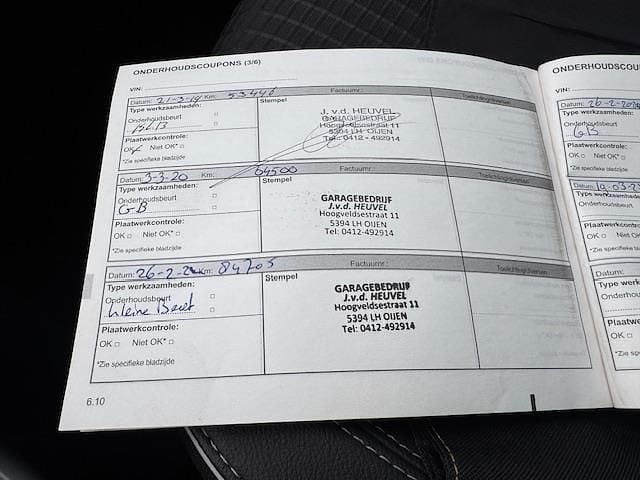 ONDERHOUDSCOUPONS (3/6)
VIN:
Datum: 21-3-19 Km: 53446 Factuurnr.: Toelichting/diversen
Type werkzaamheden: Stempel
Onderhoudsbeurt
Plaatwerkcontrole:
OK Niet OK*
*Zie specifieke bladzijde
J. v.d. HEUVEL
GARAGEBEDRIJF
Hoogveldsestraat 11
5394 LH OIJEN
Tel.: 0412-492914
Datum: 3-3-20 Km: 69500 Factuurnr.: Toelichting/diversen
Type werkzaamheden: Stempel
Onderhoudsbeurt
G.B
Plaatwerkcontrole:
OK Niet OK*
*Zie specifieke bladzijde
GARAGEBEDRIJF
J.v.d. HEUVEL
Hoogveldsestraat 11
5394 LH OIJEN
Tel: 0412-492914
Datum: 26-2-2 Km: 84705 Factuurnr.: Toelichting/diversen
Type werkzaamheden: Stempel
Onderhoudsbeurt
kleine Beurt
Plaatwerkcontrole:
OK Niet OK*
*Zie specifieke bladzijde
GARAGEBEDRIJF
J.v.d. HEUVEL
Hoogveldsestraat 11
5394 LH OIJEN
Tel: 0412-492914
6.10
ONDERHOUDSCOU
VIN:
Datum: 26-2-202
Type werkzaamheden:
Onderhoudsbeurt
GB
Plaatwerkcontrole:
OK Niet OK*
*Zie specifieke bladzijde
Datum: 10-03-2
Type werkzaamhed
Onderhoudsbeurt
Plaatwerkcontrole:
OK Niet OK*
*Zie specifieke bladz
Datum:
Type werkza
Onderhoud
Plaatwerkc
OK
*Zie spec